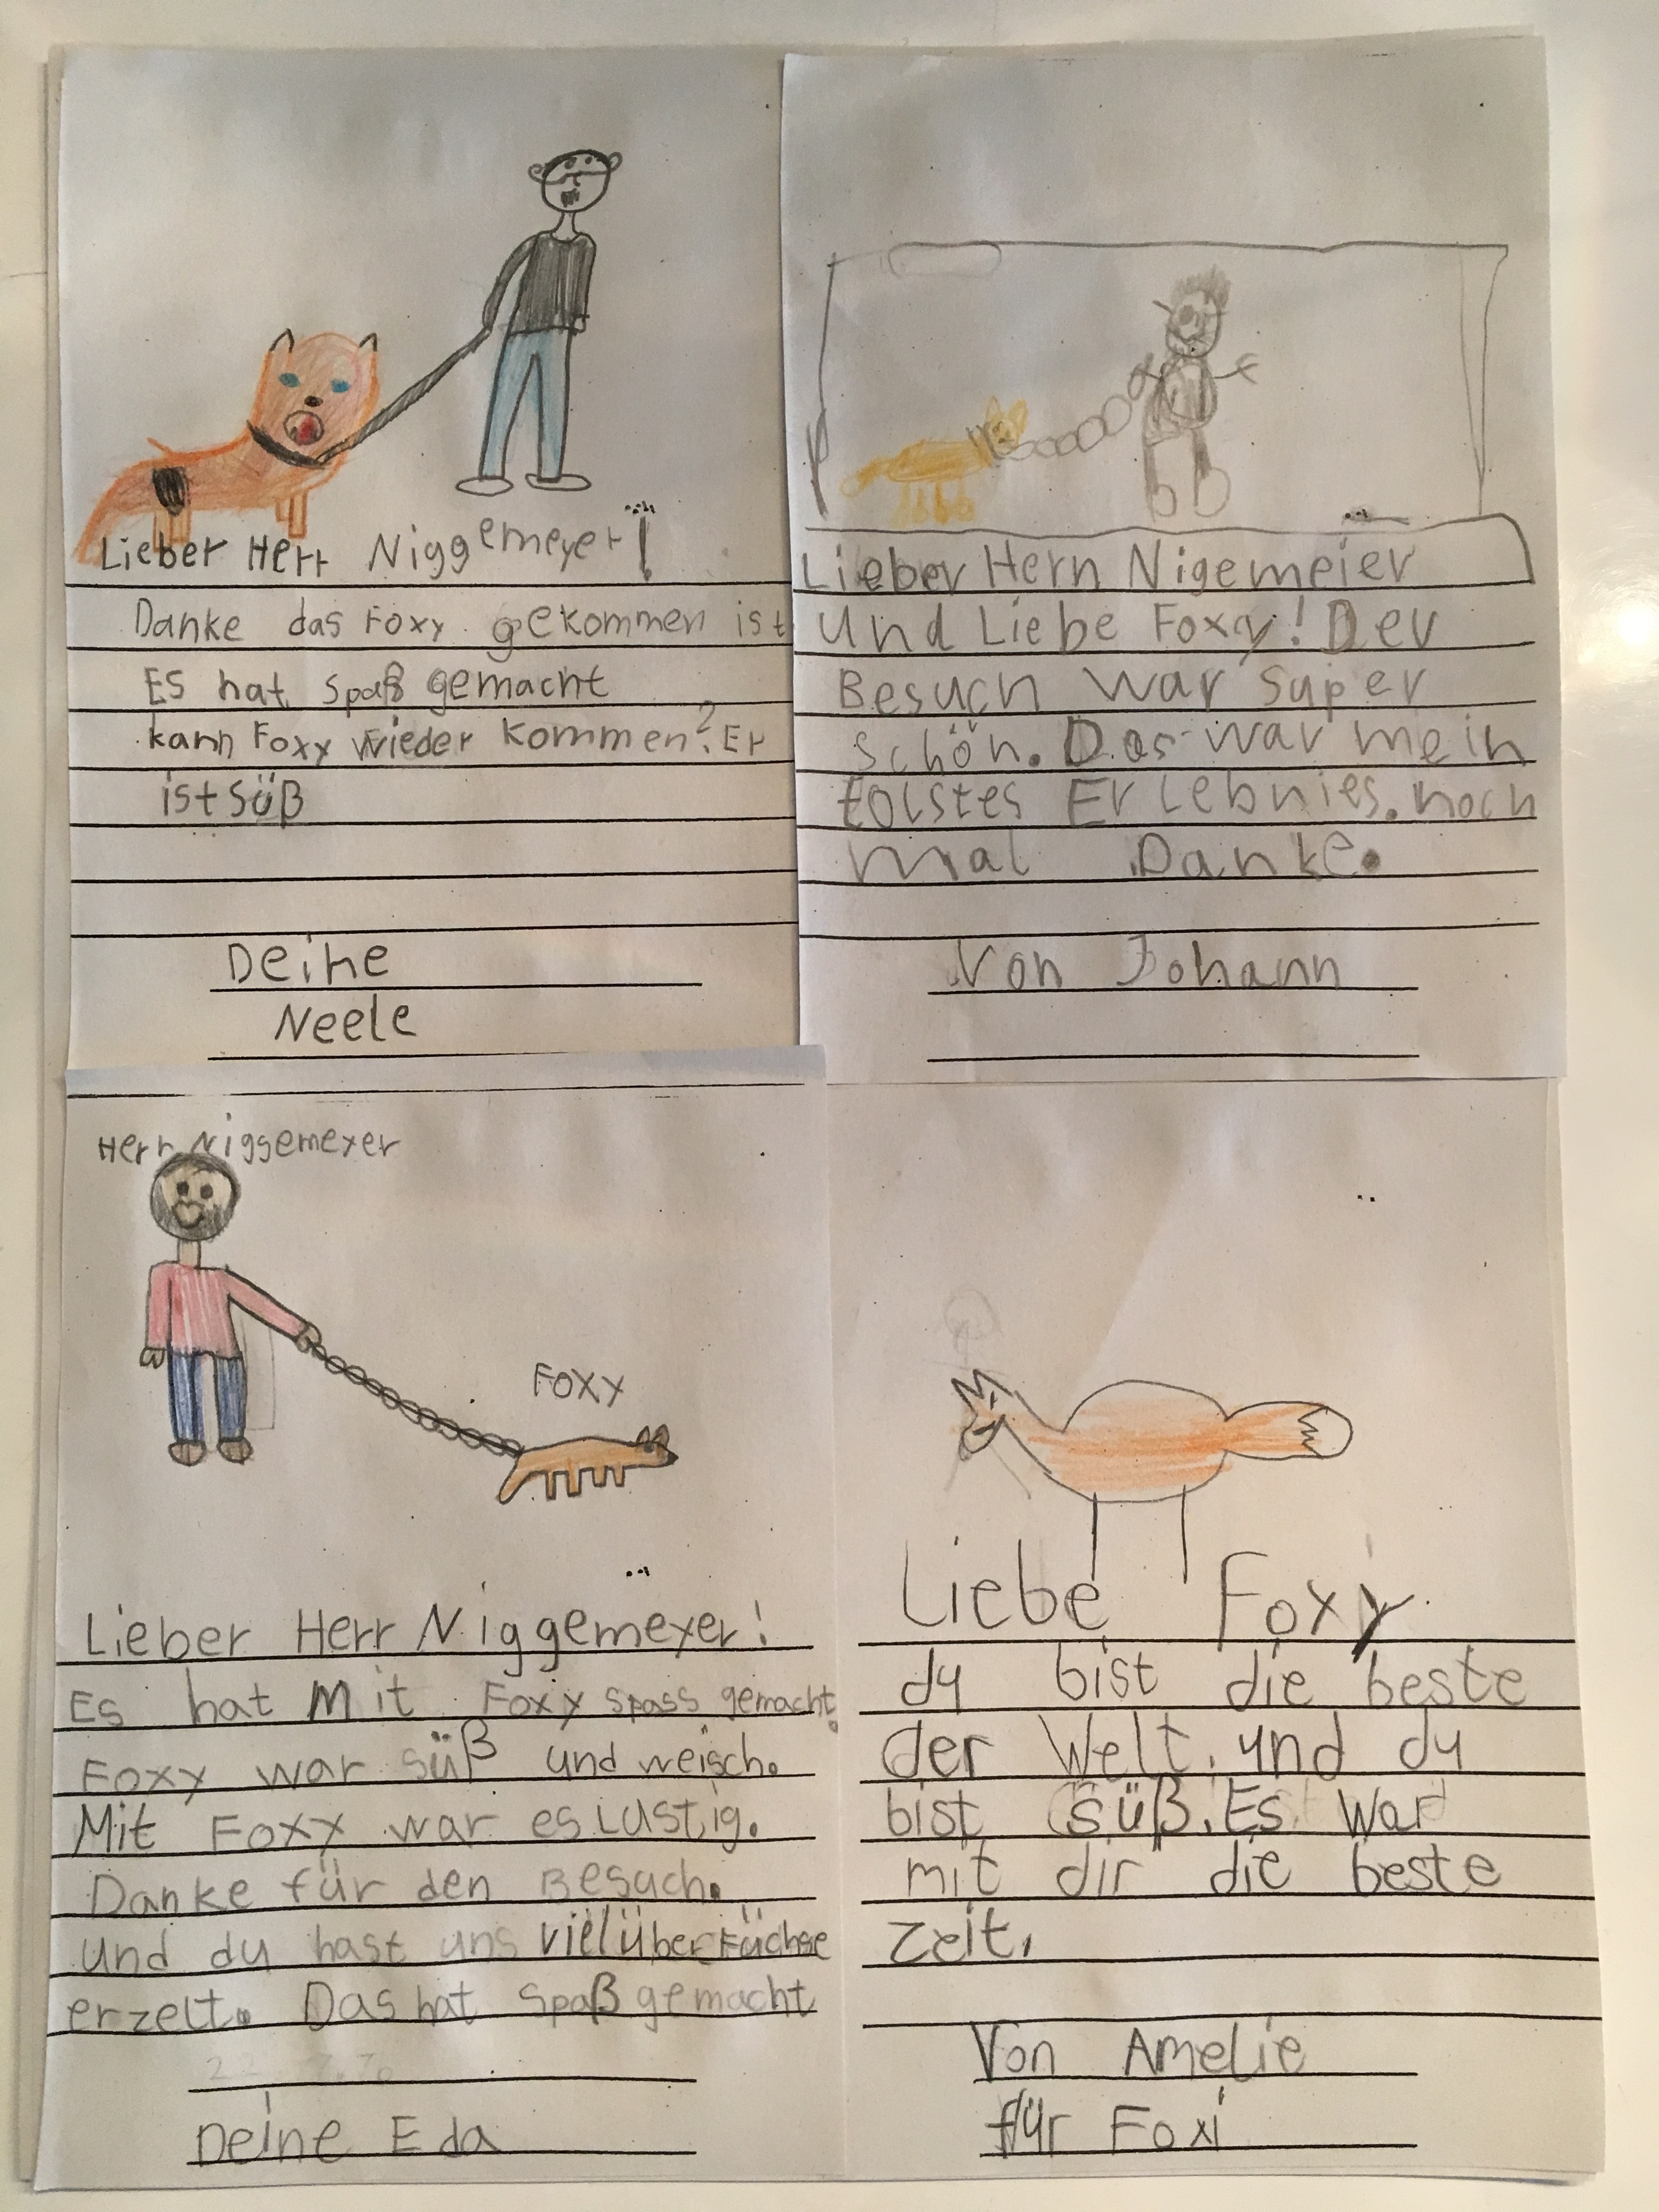 Lieber Herr Niggemeyer!
Danke das Foxy gekommen ist
Es hat Spaß gemacht
kann Foxy wieder kommen? Er
ist süß
Deine
Neele
Lieber Hern Nigemeier
Und Liebe Foxy! Der
Besuch war super
schön. Das war mein
tolstes Erlebnies. noch
mal Danke.
Von Johann
Herr Niggemeyer
Foxy
Lieber Herr Niggemeyer!
Es hat Mit Foxy spass gemacht.
Foxy war süß und weisch.
Mit Foxy war es Lustig.
Danke für den Besuch.
und du hast uns viel über Füchse
erzelt. Das hat Spaß gemacht
Deine Eda
Liebe Foxy
du bist die beste
der Welt. und du
bist süß. Es war
mit dir die beste
Zeit.
Von Amelie
für Foxi